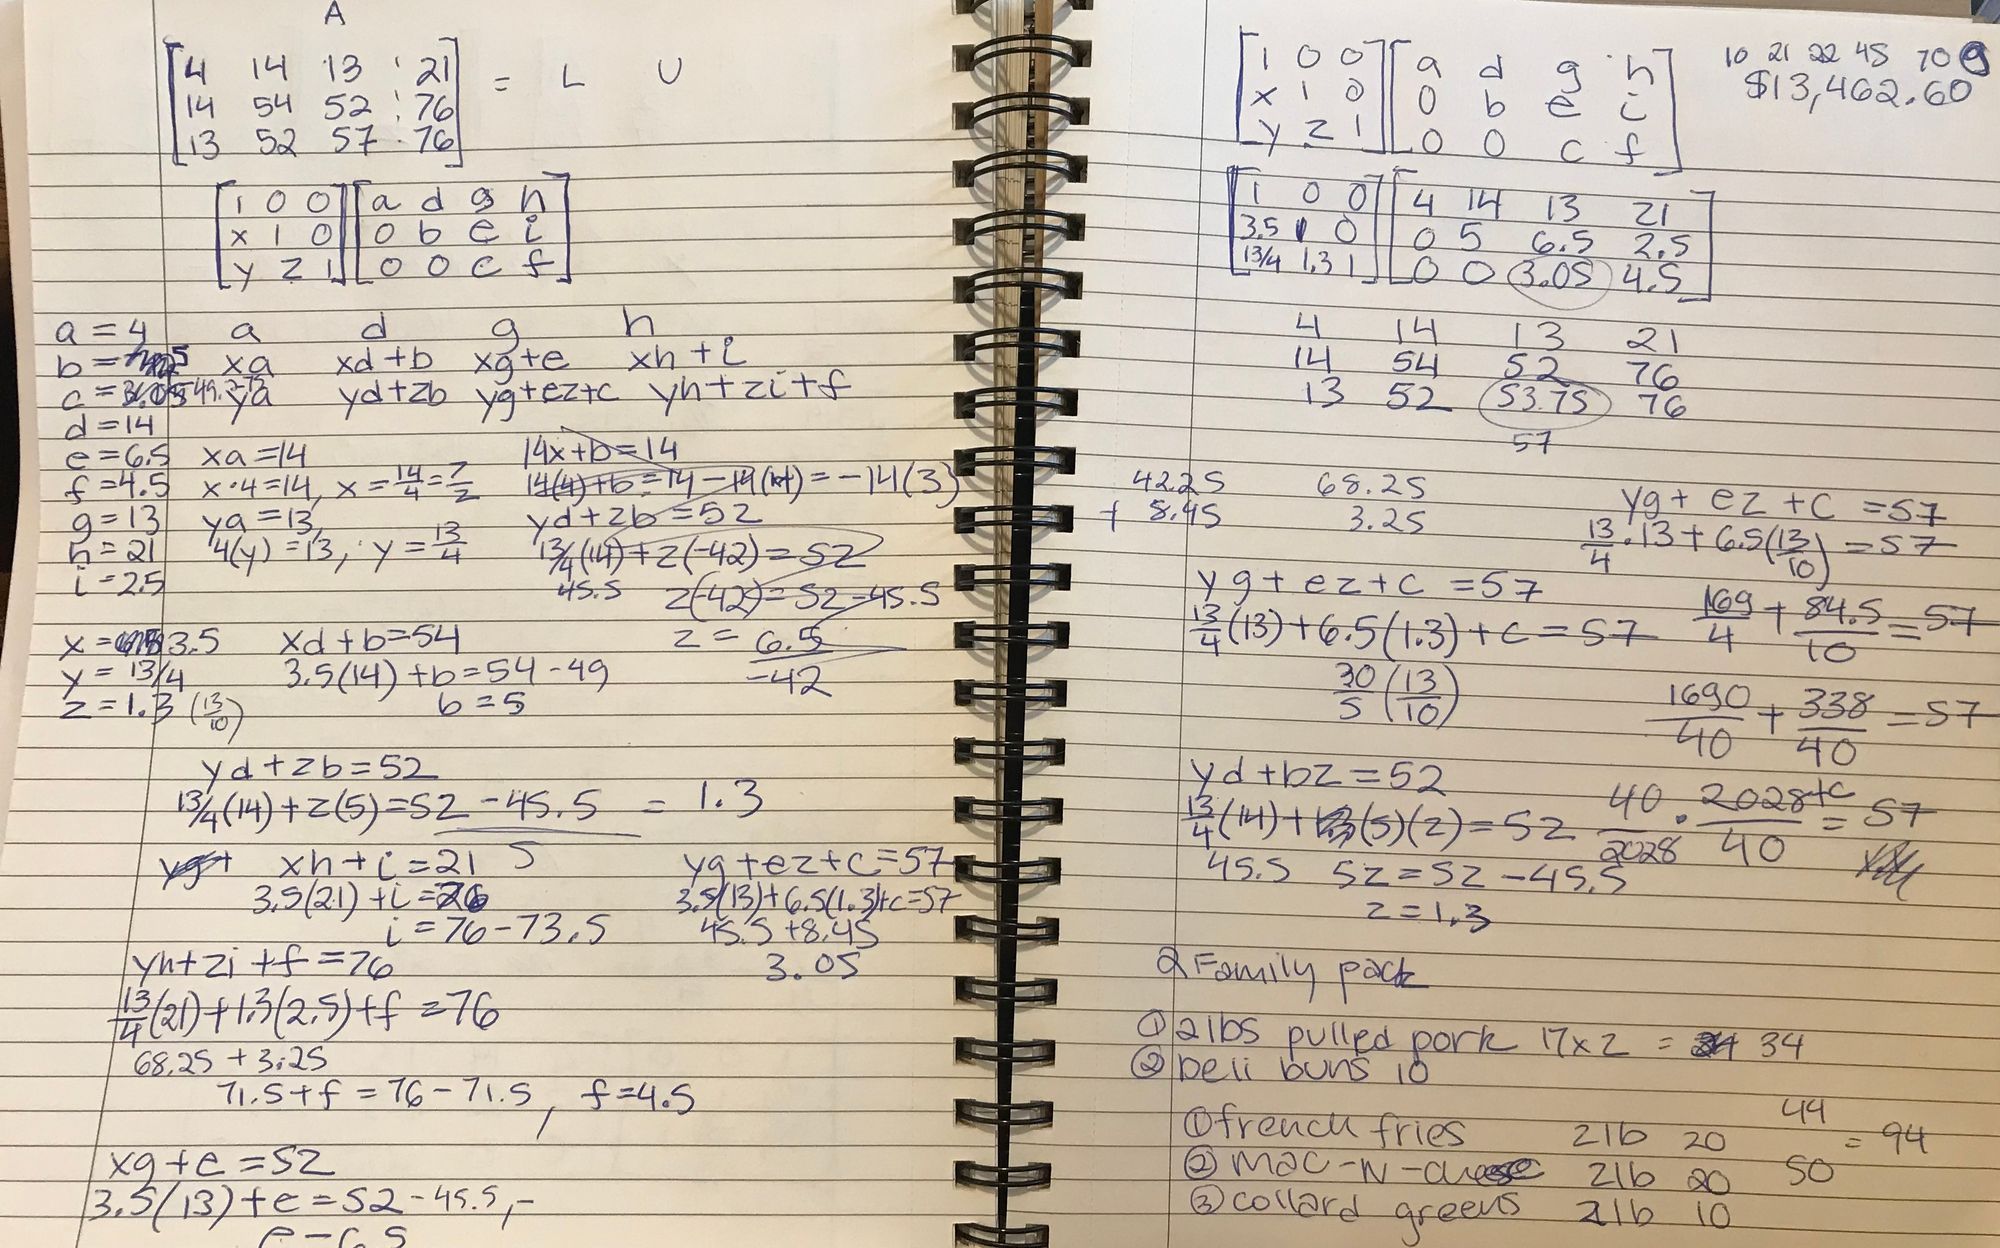 A
4 14 13 21
14 54 52 76
13 52 57 76
= L U
1 0 0 a d g h
x 1 0 0 b e i
y z 1 0 0 c f
a = 4 a d g h
b = 5 xa xd+b xg+e xh+i
c = ya yd+zb yg+ez+c yh+zi+f
d = 14
e = 6.5 xa = 14 14x+b=14
f = 4.5 x·4=14, x = 14/4 = 7/2 14(4)+b=14-14(4) = -14(3)
g = 13 ya = 13, yd+zb=52
h = 21 4(y) = 13, y = 13/4 13/4(14)+z(-42)=52
i = 2.5 45.5 z(-42)=52-45.5
x = 3.5 xd+b=54 z = 6.5/-42
y = 13/4 3.5(14)+b=54-49
z = 1.3 (13/10) b=5
yd+zb=52
13/4(14)+z(5)=52-45.5 = 1.3
5
yg+ xh+i=21 yg+ez+c=57
3.5(21)+i=76 3.5(13)+6.5(1.3)+c=57
i=76-73.5 45.5+8.45
yh+zi+f=76 3.05
13/4(21)+1.3(2.5)+f=76
68.25+3.25
71.5+f=76-71.5, f=4.5
xg+e=52
3.5(13)+e=52-45.5,-
e=6.5
1 0 0 a d g h
x 1 0 0 b e i
y z 1 0 0 c f
10 21 22 45 70 9
$13,462.60
1 0 0 4 14 13 21
3.5 1 0 0 5 6.5 2.5
13/4 1.3 1 0 0 3.05 4.5
4 14 13 21
14 54 52 76
13 52 53.75 76
57
42.25 68.25
+ 8.45 3.25
yg+ez+c=57
13/4·13+6.5(13/10)=57
yg+ez+c=57
13/4(13)+6.5(1.3)+c=57
169/4+84.5/10=57
30/5(13/10)
1690/40+338/40=57
yd+bz=52
13/4(14)+(5)(z)=52
40/2028·2028+c/40=57
45.5 5z=52-45.5
z=1.3
2 Family pack
① 2lbs pulled pork 17x2 = 34
② Deli buns 10
44
① french fries 2lb 20 = 94
② Mac-N-cheese 2lb 20 50
③ collard greens 2lb 10